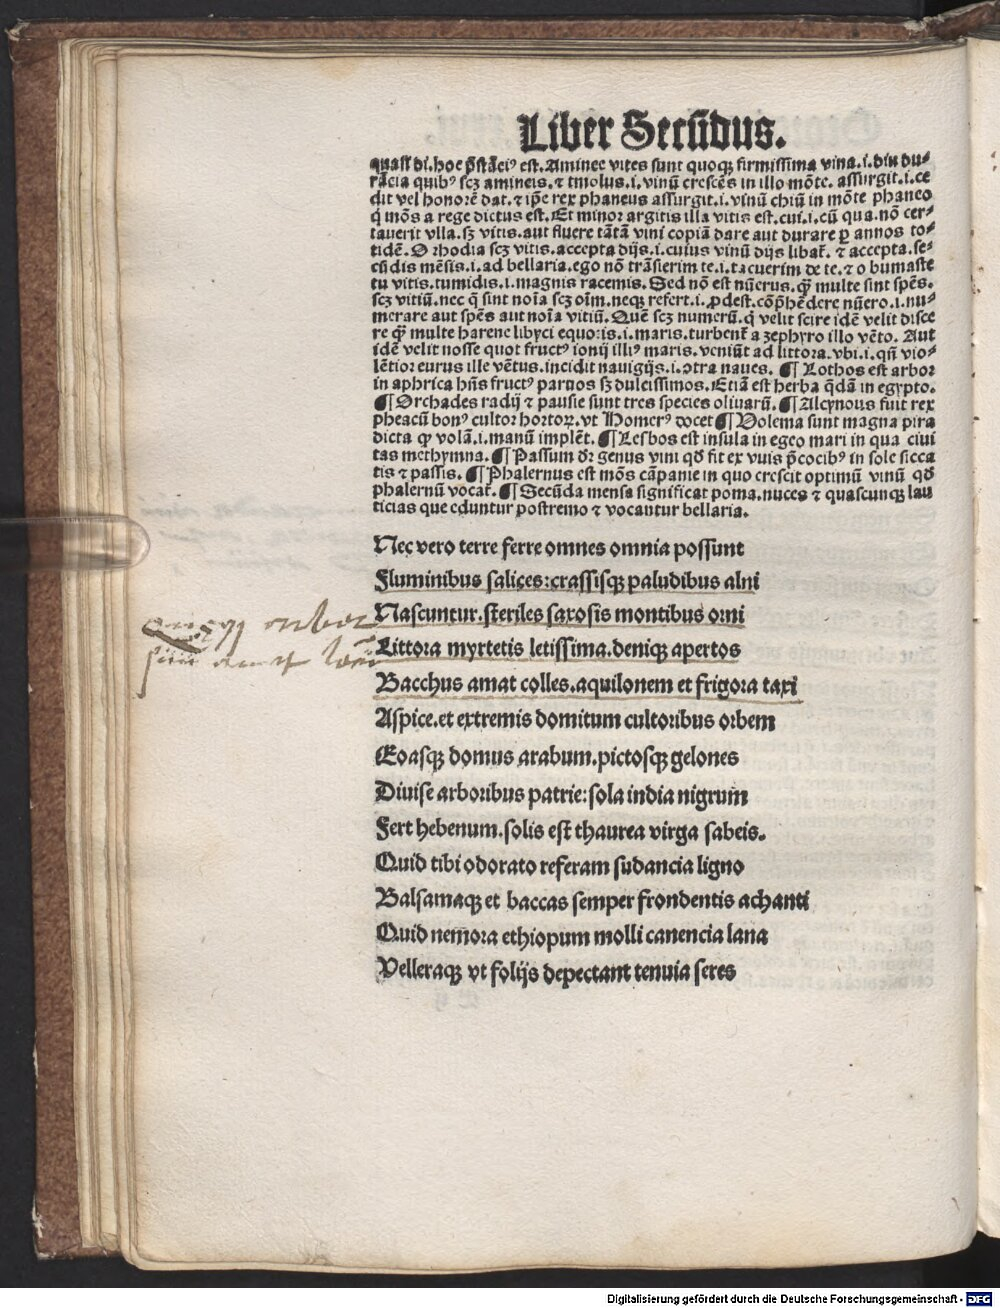 Liber Secūdus.
quasi di. hoc p̄stāci⁹ est. Aminee vites sunt quoqꝫ firmissima vina .i. diu du⸗
rācia quib⁹ scꝫ amineis. ⁊ tmolus .i. vinū crescēs in illo mōte. assurgit .i. ce
dit vel honorē dat. ⁊ ip̄e rex phaneus assurgit .i. vinū chiū in mōte phaneo
q̇ mōs a rege dictus est. Et minor argitis illa vitis est. cui .i. cū qua. nō cer⸗
tauerit vlla. sꝫ vitis. aut fluere tātā vini copiā dare aut durare ꝑ annos to⸗
tidē. O rhodia scꝫ vitis. accepta dijs .i. cuius vinū dijs libat᷑. ⁊ accepta. se⸗
cūdis mēsis .i. ad bellaria. ego nō trāsierim te .i. tacuerim de te. ⁊ o bumaste
tu vitis. tumidis .i. magnis racemis. Sed nō est nūerus. qꝫ multe sint spēs.
scꝫ vitiū. nec q̄ sint noīa scꝫ oīm. neqꝫ refert .i. ꝓdest. cōp̄hēdere nūero .i. nu⸗
merare aut spēs aut noīa vitiū. Quē scꝫ numerū. q̇ velit scire idē velit disce
re qꝫ multe harene libyci equoris .i. maris. turbent᷑ a zephyro illo vēto. Aut
idē velit nosse quot fruct⁹ ionij illi⁹ maris. veniūt ad littora. vbi .i. qn̄ vio⸗
lētior eurus ille vētus. incidit nauigijs .i. ↄtra naues. ¶ Lothos est arbor
in aphrica hn̄s fruct⁹ paruos sꝫ dulcissimos. Etiā est herba q̄dā in egypto.
¶ Orchades radij ⁊ pausie sunt tres species oliuarū. ¶ Alcynous fuit rex
pheacū bon⁹ cultor hortoꝝ. vt Homer⁹ docet ¶ Volema sunt magna pira
dicta qꝫ volā .i. manū implēt. ¶ Lesbos est insula in egeo mari in qua ciui
tas methymna. ¶ Passum dr̄ genus vini qd̄ fit ex vuis p̄cocib⁹ in sole sicca
tis ⁊ passis. ¶ Phalernus est mōs cāpanie in quo crescit optimū vinū qd̄
phalernū vocat᷑. ¶ Secūda mensa significat poma. nuces ⁊ quascunqꝫ lau
ticias que eduntur postremo ⁊ vocantur bellaria.
Nec vero terre ferre omnes omnia possunt
Fluminibus salices: crassisqꝫ paludibus alni
Nascuntur. steriles saxosis montibus orni
Littora myrtetis letissima. deniqꝫ apertos
Bacchus amat colles. aquilonem et frigora taxi
Aspice. et extremis domitum cultoribus orbem
Eoasqꝫ domus arabum. pictosqꝫ gelones
Diuise arboribus patrie: sola india nigrum
Fert hebenum. solis est thaurea virga sabeis.
Quid tibi odorato referam sudancia ligno
Balsamaqꝫ et baccas semper frondentis achanti
Quid nemora ethiopum molli canencia lana
Velleraqꝫ vt folijs depectant tenuia seres
Digitalisierung gefördert durch die Deutsche Forschungsgemeinschaft - DFG